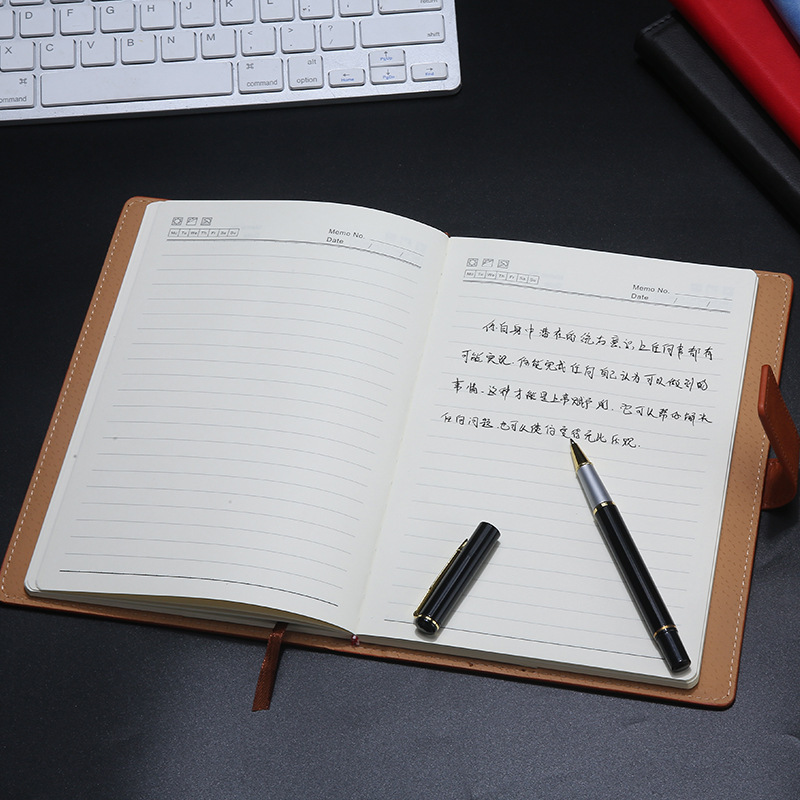 return
S D F G H J K L
X C V B N M < > ? shift
command
⌘ command
alt option
Home
PgUp
PgDn
End
Mo Tu We Th Fr Sa Su
Memo No.
Date / /
Mo Tu We Th Fr Sa Su
Memo No.
Date / /
你自身中潜在的意识上任何事都有
可能实现.你能完成任何自己认为可以做到的
事情.这种才能是上帝赐予的.它可以帮你解决
任何问题.也可以使你变得无比乐观.